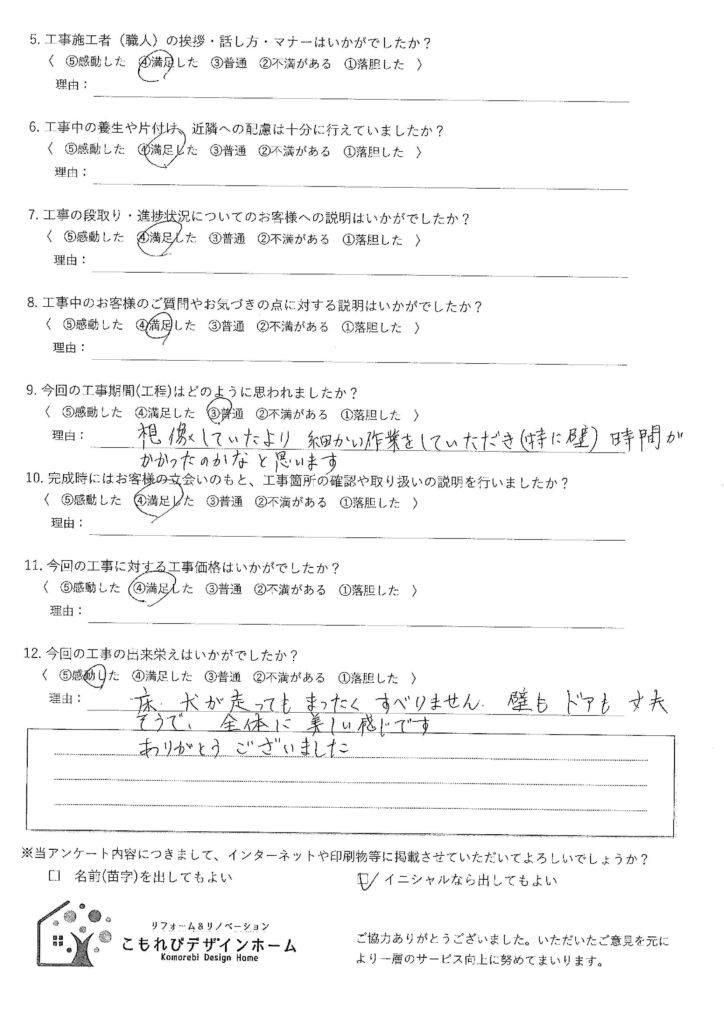 5. 工事施工者（職人）の挨拶・話し方・マナーはいかがでしたか？
〈 ⑤感動した ④満足した ③普通 ②不満がある ①落胆した 〉
理由：
6. 工事中の養生や片付け、近隣への配慮は十分に行えていましたか？
〈 ⑤感動した ④満足した ③普通 ②不満がある ①落胆した 〉
理由：
7. 工事の段取り・進捗状況についてのお客様への説明はいかがでしたか？
〈 ⑤感動した ④満足した ③普通 ②不満がある ①落胆した 〉
理由：
8. 工事中のお客様のご質問やお気づきの点に対する説明はいかがでしたか？
〈 ⑤感動した ④満足した ③普通 ②不満がある ①落胆した 〉
理由：
9. 今回の工事期間(工程)はどのように思われましたか？
〈 ⑤感動した ④満足した ③普通 ②不満がある ①落胆した 〉
理由： 想像していたより 細かい作業をしていただき(特に壁) 時間が
かかったのかなと思います
10. 完成時にはお客様の立会いのもと、工事箇所の確認や取り扱いの説明を行いましたか？
〈 ⑤感動した ④満足した ③普通 ②不満がある ①落胆した 〉
理由：
11. 今回の工事に対する工事価格はいかがでしたか？
〈 ⑤感動した ④満足した ③普通 ②不満がある ①落胆した 〉
理由：
12. 今回の工事の出来栄えはいかがでしたか？
〈 ⑤感動した ④満足した ③普通 ②不満がある ①落胆した 〉
理由： 床、犬が走っても まったく すべりません。壁も ドアも 丈夫
そうで、全体に 美しい感じです
ありがとう ございました
※当アンケート内容につきまして、インターネットや印刷物等に掲載させていただいてよろしいでしょうか？
□ 名前(苗字)を出してもよい ☑ イニシャルなら出してもよい
リフォーム&リノベーション
こもれびデザインホーム
Komorebi Design Home
ご協力ありがとうございました。いただいたご意見を元に
より一層のサービス向上に努めてまいります。